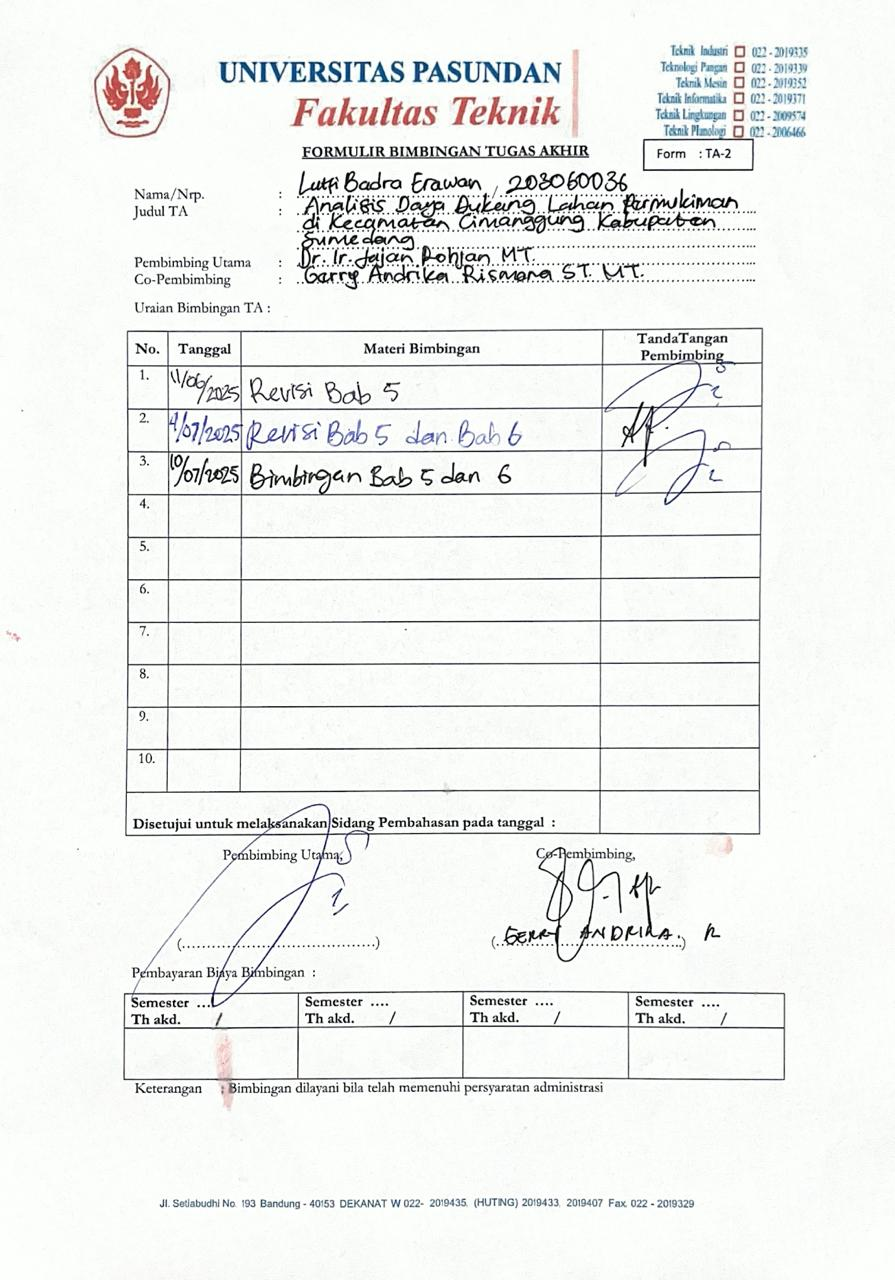 UNIVERSITAS PASUNDAN
Fakultas Teknik
Teknik Industri 022 - 2019335
Teknologi Pangan 022 - 2019339
Teknik Mesin 022 - 2019352
Teknik Informatika 022 - 2019371
Teknik Lingkungan 022 - 2009574
Teknik Planologi 022 - 2006466
FORMULIR BIMBINGAN TUGAS AKHIR
Form : TA-2
Nama/Nrp. : Lutfi Badra Erawan, 203060036
Judul TA : Analisis Daya Dukung Lahan Permukiman
di Kecamatan Cimanggung Kabupaten
Sumedang
Pembimbing Utama : Dr. Ir. Jajan Rohjan MT.
Co-Pembimbing : Gerry Andrika Rismana ST. MT.
Uraian Bimbingan TA :
No. Tanggal Materi Bimbingan TandaTangan
Pembimbing
1. 11/06/2025 Revisi Bab 5
2. 4/07/2025 Revisi Bab 5 dan Bab 6
3. 10/07/2025 Bimbingan Bab 5 dan 6
4.
5.
6.
7.
8.
9.
10.
Disetujui untuk melaksanakan Sidang Pembahasan pada tanggal :
Pembimbing Utama, Co-Pembimbing,
(..............................) (GERRY ANDRIKA. R
Pembayaran Biaya Bimbingan :
Semester .... Semester .... Semester .... Semester ....
Th akd. / Th akd. / Th akd. / Th akd. /
Keterangan : Bimbingan dilayani bila telah memenuhi persyaratan administrasi
Jl. Setiabudhi No. 193 Bandung - 40153 DEKANAT W 022- 2019435, (HUTING) 2019433, 2019407 Fax. 022 - 2019329